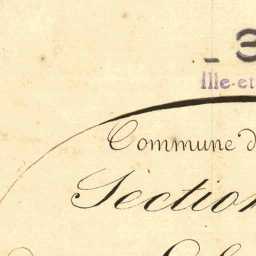 Ille-et
Commune d
Section